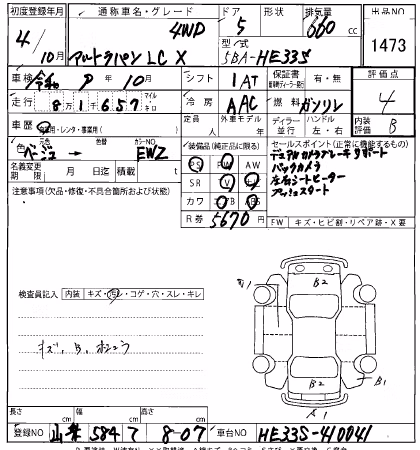 初度登録年月 通称車名・グレード ドア 形状 排気量 出品NO
4/10月 アルトラパン LC X 4WD 5 660 cc 1473
型式 5BA-HE33S
車検 令和 9年10月 シフト 1AT 保証書 有・無 評価点
走行 8 1 6 5 7 マイル キロ 冷房 AAC 燃料 ガソリン 4
車歴 自家用・レンタ・事業用( ) 定員 人 外車モデル 年 ディーラー 並行 ハンドル 左・右 内装評価 B
色 元色 ベージュ → 色替 カラーNO EWZ
装備品(純正品に限る) セールスポイント(正常に機能するもの)
名義変更期限 月 日迄 積載 t
PS PW AW
SR TV ナビ
カワ エアB ABS
R券 5670円
デュアルカメラブレーキサポート
バックカメラ
左右シートヒーター
プッシュスタート
注意事項(欠品・修復・不具合箇所および状態)
FW キズ・ヒビ割・リペア跡・X要
検査員記入 内装 キズ・汚レ・コゲ・穴・スレ・キレ
キズ、B、ホシュウ
B2
B2
B1
A1
長さ cm 幅 cm 高さ cm
登録NO 山梨 584 て 8-07 車台NO HE33S-410041